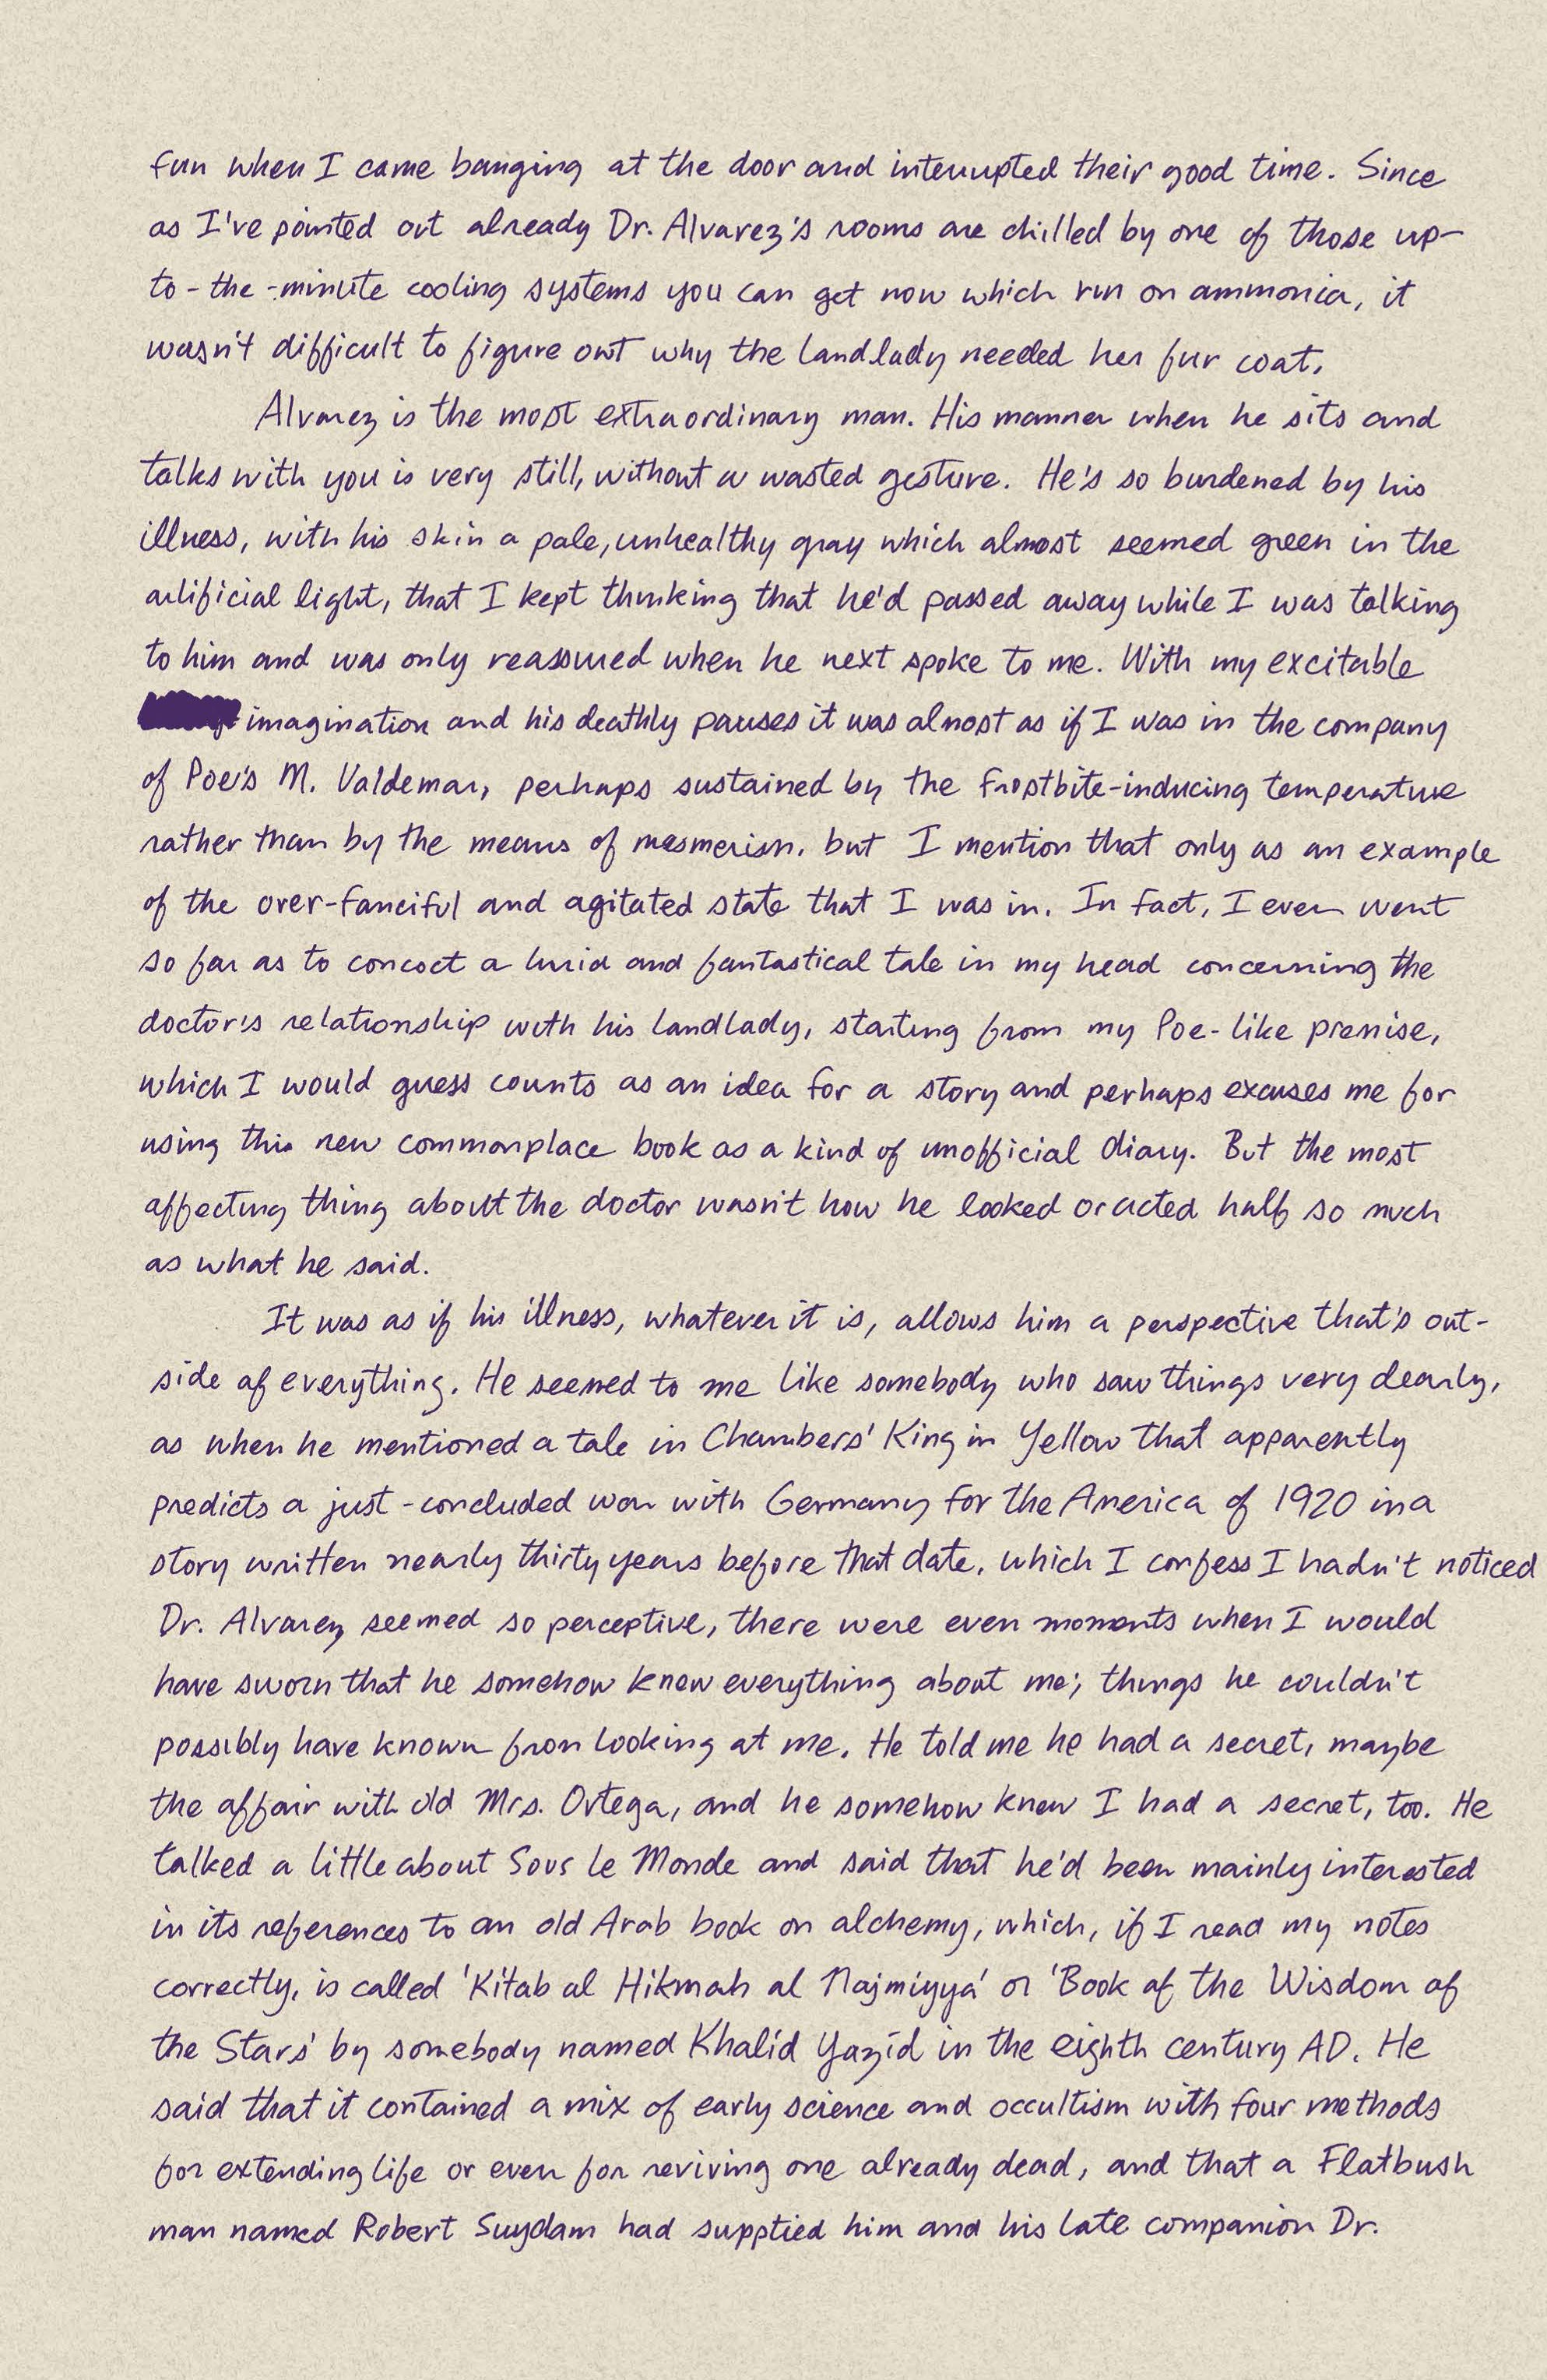 fun when I came banging at the door and interrupted their good time. Since
as I've pointed out already Dr. Alvarez's rooms are chilled by one of those up-
to-the-minute cooling systems you can get now which run on ammonia, it
wasn't difficult to figure out why the landlady needed her fur coat.
Alvarez is the most extraordinary man. His manner when he sits and
talks with you is very still, without a wasted gesture. He's so burdened by his
illness, with his skin a pale, unhealthy gray which almost seemed green in the
artificial light, that I kept thinking that he'd passed away while I was talking
to him and was only reassured when he next spoke to me. With my excitable
imagination and his deathly pauses it was almost as if I was in the company
of Poe's M. Valdemar, perhaps sustained by the frostbite-inducing temperature
rather than by the means of mesmerism, but I mention that only as an example
of the over-fanciful and agitated state that I was in. In fact, I even went
so far as to concoct a lurid and fantastical tale in my head concerning the
doctor's relationship with his landlady, starting from my Poe-like premise,
which I would guess counts as an idea for a story and perhaps excuses me for
using this new commonplace book as a kind of unofficial diary. But the most
affecting thing about the doctor wasn't how he looked or acted half so much
as what he said.
It was as if his illness, whatever it is, allows him a perspective that's out-
side of everything. He seemed to me like somebody who saw things very clearly,
as when he mentioned a tale in Chambers' King in Yellow that apparently
predicts a just-concluded war with Germany for the America of 1920 in a
story written nearly thirty years before that date, which I confess I hadn't noticed
Dr. Alvarez seemed so perceptive, there were even moments when I would
have sworn that he somehow knew everything about me; things he couldn't
possibly have known from looking at me. He told me he had a secret, maybe
the affair with old Mrs. Ortega, and he somehow knew I had a secret, too. He
talked a little about Sous le Monde and said that he'd been mainly interested
in its references to an old Arab book on alchemy, which, if I read my notes
correctly, is called 'Kitab al Hikmah al Najmiyya' or 'Book of the Wisdom of
the Stars' by somebody named Khalid Yazid in the eighth century AD. He
said that it contained a mix of early science and occultism with four methods
for extending life or even for reviving one already dead, and that a Flatbush
man named Robert Suydam had supplied him and his late companion Dr.